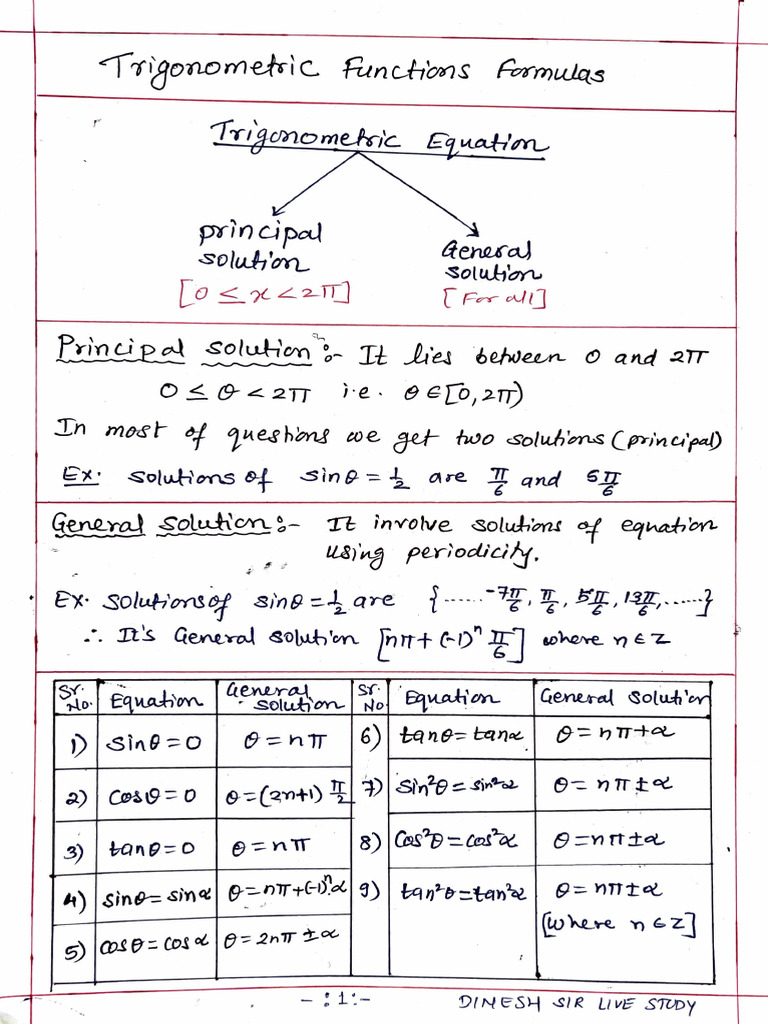 Trigonometric Functions Formulas
Trigonometric Equation
principal
solution
[0 ≤ x < 2π]
General
solution
[For all]
Principal solution:- It lies between 0 and 2π
0 ≤ θ < 2π i.e. θ∈[0,2π)
In most of questions we get two solutions (principal)
Ex. solutions of sinθ = 1/2 are π/6 and 5π/6
General solution:- It involve solutions of equation
using periodicity.
Ex. solutions of sinθ = 1/2 are {...... -7π/6, π/6, 5π/6, 13π/6, ......}
∴ It's General solution [nπ + (-1)ⁿ π/6] where n∈Z
Sr. No. Equation General solution Sr. No Equation General Solution
1) sinθ = 0 θ = nπ 6) tanθ = tanα θ = nπ+α
2) cosθ = 0 θ = (2n+1) π/2 7) sin²θ = sin²α θ = nπ ± α
3) tanθ = 0 θ = nπ 8) cos²θ = cos²α θ = nπ ± α
4) sinθ = sinα θ = nπ + (-1)ⁿ.α 9) tan²θ = tan²α θ = nπ ± α
5) cosθ = cosα θ = 2nπ ± α [where n∈Z]
-:1:- DINESH SIR LIVE STUDY